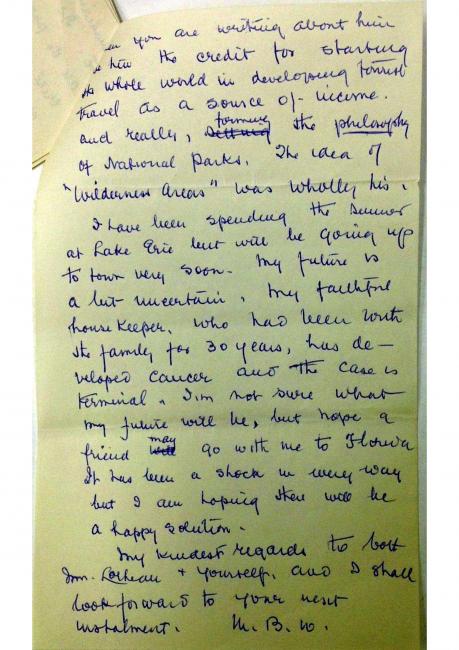 you are writing about him
him the credit for starting
whole world in developing tourist
travel as a source of income.
and really, forming the philosophy
of National Parks. The idea of
"Wilderness Areas" was wholly his.
I have been spending the summer
at Lake Erie but will be going up
to town very soon. My future is
a bit uncertain. My faithful
housekeeper, who had been with
the family for 30 years, has de-
veloped cancer and the case is
terminal. I'm not sure what
my future will be, but hope a
friend may go with me to Florida
It has been a shock in every way
but I am hoping there will be
a happy solution.
My kindest regards to both
& yourself, and I shall
look forward to your next
instalment. M. B. W.